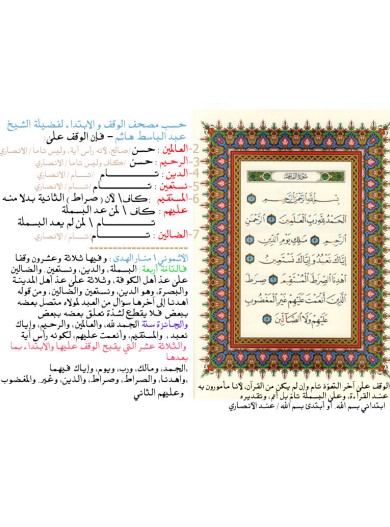 حسب مصحف الوقف والابتداء لفضيلة الشيخ
عبد الباسط هاشم – فإن الوقف على:
2-العالمين : حسن /صالح، لأنه رأس آية، وليس تاما/ الانصاري
3-الرحيم : حسن /كاف وليس تاما/ الانصاري
4-الدين : تام /تام/ الانصاري
5-نستعين : تام /تام/ الانصاري
6-المستقيم : كاف\ لأن (صراط) الثانية بدلا منه
عليهم : كاف \ لمن عد البسملة
تام \ لمن لم يعد البسملة
7-الضالين : تام /تام/ الانصاري
الأشموني \ منار الهدى : وفيها ثلاثة وعشرون وقفا
فالتامة أربعة: البسملة، والدين، ونستعين، والضالين
على عد أهل الكوفة، وثلاثة على عد أهل المدينة
والبصرة، وهو الدين، ونستعين، والضالين، ومن قوله
اهدنا إلى آخرها سؤال من العبد لمولاه متصل بعضه
ببعض فلا يقطع لشدة تعلق بعضه ببعض
والجائزة ستة الحمد لله، والعالمين، والرحيم، وإياك
نعبد، والمستقيم، وأنعمت عليهم، لكونه رأس آية
والثلاثة عشر التي يقبح الوقف عليها والابتداء بما
بعدها
الحمد، ومالك، ورب، ويوم، وإياك فيهما
،واهدنا، والصراط، وصراط، والذين، وغير، والمغضوب
وعليهم الثاني
سورة الفاتحة
بسم الله الرحمن الرحيم
الحمد لله رب العالمين الرحمن
الرحيم مالك يوم الدين
إياك نعبد وإياك نستعين
اهدنا الصراط المستقيم صراط
الذين أنعمت عليهم غير المغضوب
عليهم ولا الضالين
الوقف على آخر التعوذ تام وإن لم يكن من القرآن، لأنا مأمورون به
عند القراءة، وعلى البسملة تام بل أتم، وتقديره
ابتدائي بسم الله، أو أبتدئ بسم الله / عند الانصاري